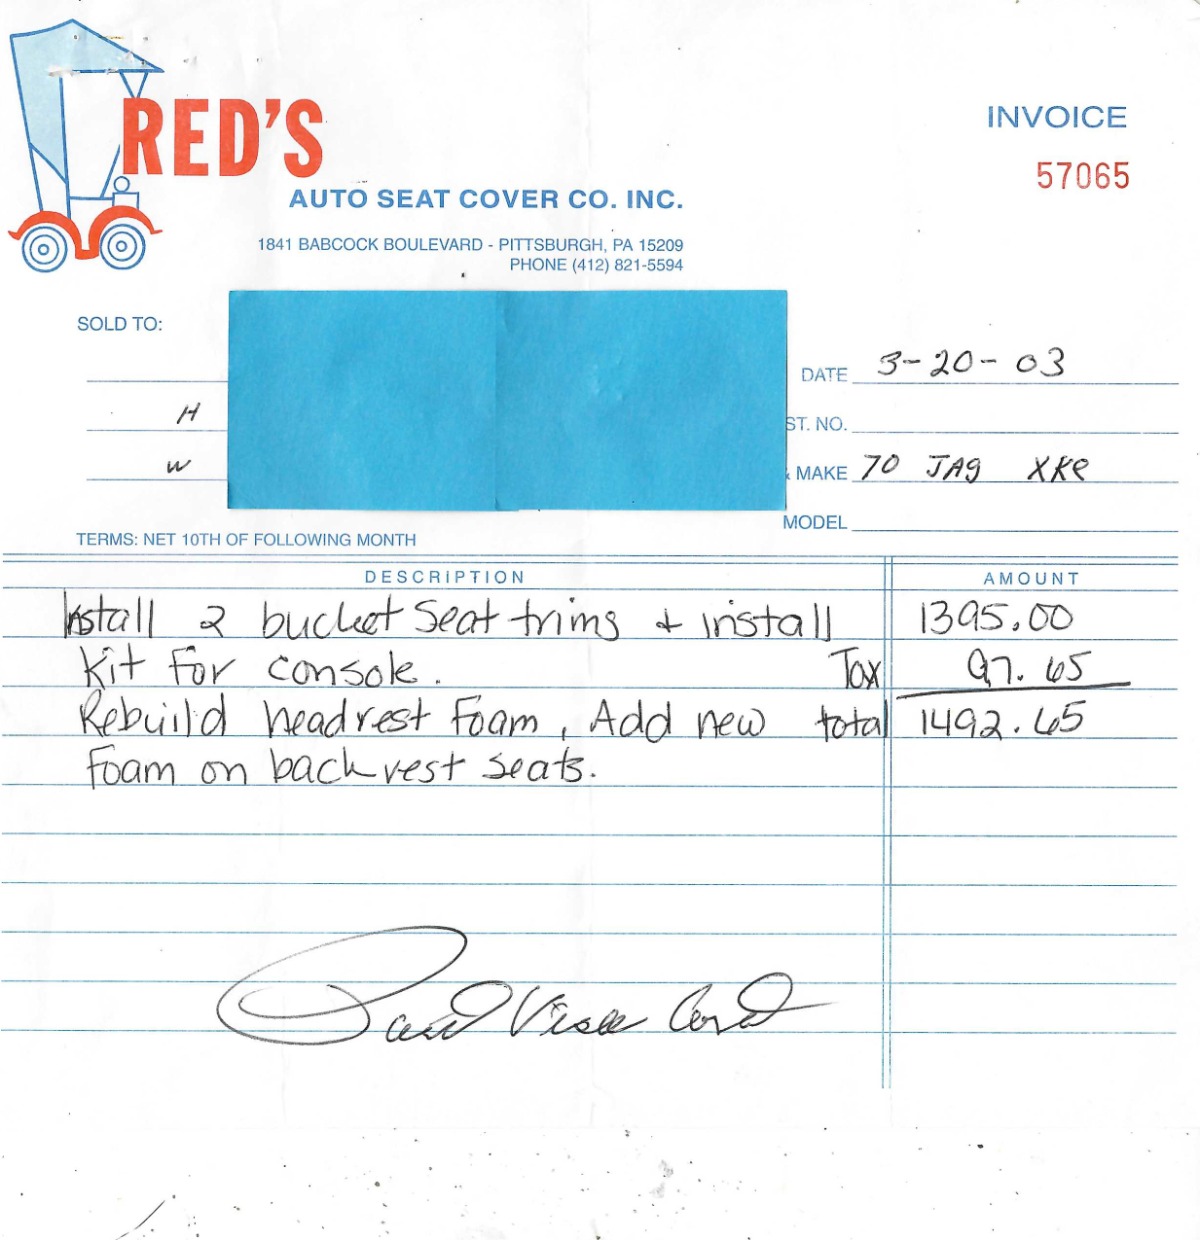 RED'S
AUTO SEAT COVER CO. INC.
1841 BABCOCK BOULEVARD - PITTSBURGH, PA 15209
PHONE (412) 821-5594
INVOICE
57065
SOLD TO:
H
W
DATE 3-20-03
ST. NO.
& MAKE 70 JAg XKe
MODEL
TERMS: NET 10TH OF FOLLOWING MONTH
DESCRIPTION AMOUNT
Install 2 bucket seat trims + install 1395.00
Kit For console. Tax 97.65
Rebuild headrest Foam, Add new total 1492.65
Foam on backrest seats.
Paid Visa Card